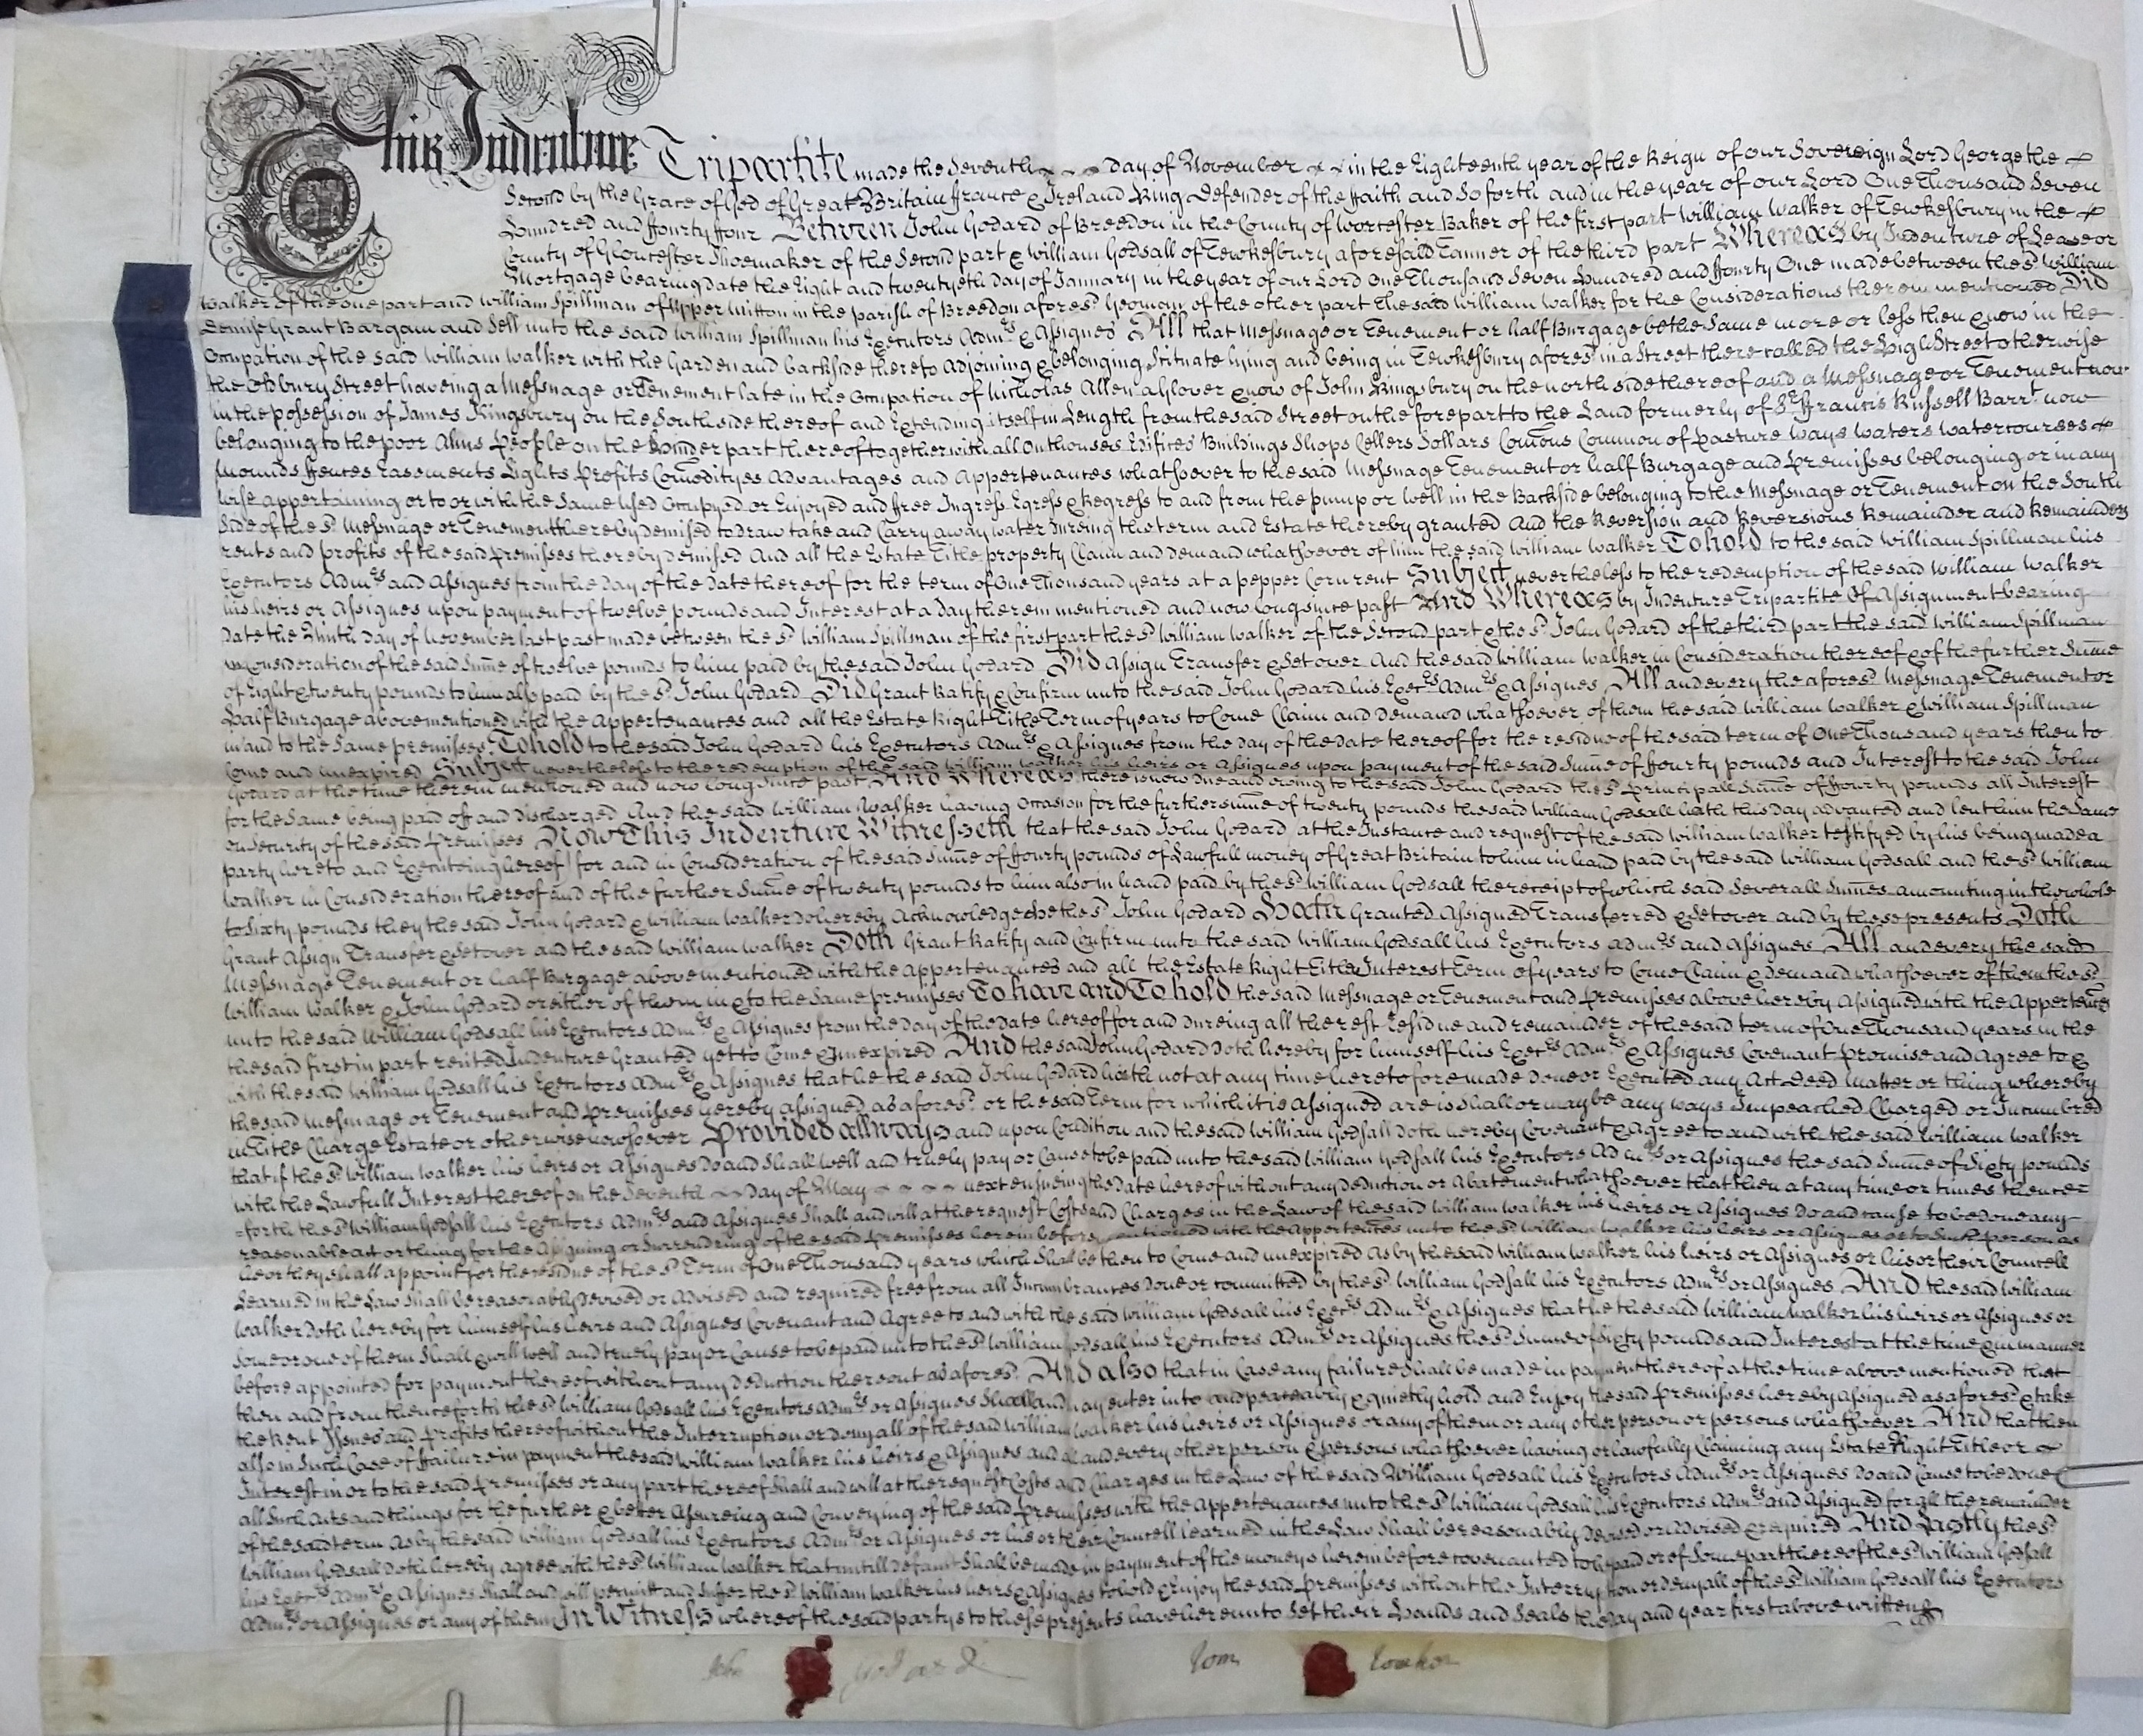 This Indenture Tripartite made the Seventh day of November in the Eighteenth year of the Reign of our Sovereign Lord George the
Second by the Grace of God of Great Britain ffrance & Ireland King Defender of the ffaith and So forth and in the year of our Lord One Thousand Seven
Hundred and ffourty ffour Between John Godard of Breedon in the County of Worcester Baker of the first part William Walker of Tewkesbury in the
County of Gloucester Shoemaker of the Second part & William Godsall of Tewkesbury aforesaid Tanner of the third part Whereas by Indenture of Lease or
Mortgage bearing date the Eight and twentyeth day of January in the year of our Lord One Thousand Seven Hundred and ffourty One made between the sd. William
Walker of the one part and William Spillman of Upper Mitton in the parish of Breedon aforesd. Yeoman of the other part The said William Walker for the Considerations therein mentioned Did
Demise Grant Bargain and Sell unto the said William Spillman his Executors Admrs & Assignes All that Messuage or Tenement or half Burgage be the Same more or less then & now in the
Occupation of the said William Walker with the Garden and backside thereto Adjoining & belonging Scituate lying and being in Tewkesbury aforesd. in a Street there called the High Street otherwise
the Oldbury Street haveing a Messuage or Tenement late in the Occupation of Nicholas Allen a Glover & now of John Kingsbury on the north side thereof and a Messuage or Tenement now
in the possession of James Kingsbury on the South side thereof and Extending itself in Length from the said Street on the forepart to the Land formerly of Sr. ffrancis Russell Barrt. now
belonging to the poor Alms People on the hinder part thereof together with all Outhouses Edifices Buildings Shops Cellers Sollars Comons Common of pasture Ways Waters Watercourses
Mounds ffences Easements Lights Profits Comodityes Advantages and Appertenances whatsoever to the said Messuage Tenement or half Burgage and Premisses belonging or in any
wise appertaining or to or with the Same Used Occupyed or Enjoyed and ffree Ingress Egress & Regress to and from the pump or Well in the Backside belonging to the Messuage or Tenement on the South
Side of the sd. Messuage or Tenement thereby demised to draw take and Carry away water dureing the term and Estate thereby granted And the Reversion and Reversions Remainder and Remainders
rents and profits of the said Premisses thereby demised And all the Estate Title property Claim and demand whatsoever of him the said William Walker To hold to the said William Spillman his
Executors Admrs and Assignes from the day of the date thereof for the term of One Thousand years at a pepper Corn rent Subject nevertheless to the redemption of the said William Walker
his heirs or Assignes upon payment of twelve pounds and Interest at a day therein mentioned and now long since past And Whereas by Indenture Tripartite Of Assignment bearing
date the Ninth day of November last past made between the sd. William Spillman of the first part the sd. William Walker of the Second part & the sd. John Godard of the third part the said William Spillman
in Consideration of the said Sume of twelve pounds to him paid by the said John Godard Did Assign Transfer & Set over And the said William Walker in Consideration thereof & of the further Sume
of Eight & twenty pounds to him also paid by the sd. John Godard Did Grant Ratify & Confirm unto the said John Godard his Execrs Admrs & Assignes All and every the aforesd. Messuage Tenement or
Half Burgage abovementioned with the Appertenances and all the Estate Right Title Term of years to Come Claim and Demand whatsoever of them the said William Walker & William Spillman
in and to the Same premisses To hold to the said John Godard his Executors Admrs & Assignes from the day of the date thereof for the residue of the said term of One Thousand years then to
Come and unexpired Subject nevertheless to the redemption of the said William Walker his heirs or Assignes upon payment of the said Sume of ffourty pounds and Interest to the said John
Godard at the time therein mentioned and now long since past And Whereas there is now due and owing to the said John Godard the sd. principall Sume of ffourty pounds all Interest
for the Same being paid off and discharged And the said William Walker having Occasion for the further sume of twenty pounds the said William Godsall hath this day advanced and lent him the Same
on Security of the said Premisses Now This Indenture Witnesseth that the said John Godard at the Instance and request of the said William Walker testifyed by his being made a
party hereto and Executeing hereof for and in Consideration of the said Sume of ffourty pounds of Lawfull money of Great Britain to him in hand paid by the said William Godsall and the sd. William
Walker in Consideration thereof and of the further Sume of twenty pounds to him also in hand paid by the sd. William Godsall the receipt of which said Severall Sumes amounting in the whole
to Sixty pounds they the said John Godard & William Walker do hereby Acknowledge he the sd. John Godard Hath Granted Assigned Transferred & Set over and by these presents Doth
Grant Assign Transfer & Set over and the said William Walker Doth Grant Ratify and Confirm unto the said William Godsall his Executors Admrs and Assignes All and every the said
Messuage Tenement or half Burgage above mentioned with the Appertenances and all the Estate Right Title Interest Term of years to Come Claim & demand whatsoever of them the sd.
William Walker & John Godard or either of them in & to the Same premisses To have and To hold the said Messuage or Tenement and Premisses above hereby Assigned with the Appertences
unto the said William Godsall his Executors Admrs & Assignes from the day of the date hereof for and dureing all the rest residue and remainder of the said term of One Thousand years in the
the said first in part recited Indenture Granted yet to Come & unexpired And the said John Godard doth hereby for himself his Execrs Admrs & Assignes Covenant promise and Agree to &
with the said William Godsall his Executors Admrs & Assignes that he the said John Godard hath not at any time heretofore made done or Executed any Act Deed matter or thing whereby
the said Messuage or Tenement and Premisses hereby assigned as aforesd. or the said Term for which it is Assigned are is Shall or may be any ways Impeached Charged or Incumbred
in Title Charge Estate or otherwise howsoever Provided allways and upon Condition and the said William Godsall doth hereby Covenant & agree to and with the said William Walker
that if the sd. William Walker his heirs or Assignes do and Shall well and truely pay or Cause to be paid unto the said William Godsall his Executors Admrs or Assignes the said Sume of Sixty pounds
with the Lawfull Interest thereof on the Seventh Day of May next ensuing the date hereof without any Deduction or Abatement whatsoever that then at any time or times thence=
=forth the sd. William Godsall his Executors Admrs and Assignes Shall and will at the request Costs and Charges in the Law of the said William Walker his heirs or Assignes do and cause to be done any
reasonable act or thing for the Assigning or Surrendring of the said Premisses herein before mentioned with the Appertences unto the sd. William Walker his heirs or Assignes or to Such person as
he or they shall appoint for the residue of the sd. Term of One Thousand years which Shall be then to Come and unexpired As by the said William Walker his heirs or Assignes or his or their Councell
Learned in the Law Shall be reasonably Devised or Advised and required free from all Incumbrances done or committed by the sd. William Godsall his Executors Admrs or Assignes And the said William
Walker doth hereby for himself his heirs and Assignes Covenant and Agree to and with the said William Godsall his Execrs Admrs & Assignes that he the said William Walker his heirs or Assignes or
Some or one of them Shall & will well and truely pay or Cause to be paid unto the sd. William Godsall his Executors Admrs or Assignes the sd. Sume of Sixty pounds and Interest at the time & in manner
before appointed for payment thereof without any Deduction thereout as aforesd. And also that in Case any failure Shall be made in payment thereof at the time above mentioned that
then and from thenceforth the sd. William Godsall his Executors Admrs or Assignes Shall and may enter into and peaceably & quietly hold and Enjoy the said Premisses hereby assigned as aforesd. & take
the Rent Issues and Profits thereof without the Interruption or denyall of the said William Walker his heirs or Assignes or any of them or any other person or persons whatsoever And that then
also in Such Case of ffailure in payment the said William Walker his heirs & Assignes and all and every other person & persons whatsoever having or lawfully Claiming any Estate Right Title or
Interest in or to the said Premisses or any part thereof Shall and will at the request Costs and Charges in the Law of the said William Godsall his Executors Admrs or Assignes do and Cause to be done
all Such Acts and things for the further & better Assureing and Conveying of the said Premisses with the Appertenances unto the sd. William Godsall his Executors Admrs and Assignes for all the remainder
of the said term As by the said William Godsall his Executors Admrs or Assignes or his or their Councell learned in the Law Shall be reasonably devised or Advised & required And Lastly the sd.
William Godsall doth hereby agree with the sd. William Walker that untill default Shall be made in payment of the moneys herein before covenanted to be paid or of Some part thereof the sd. William Godsall
his Execrs Admrs & Assignes Shall and will permitt and Suffer the sd. William Walker his heirs & Assignes to hold & Enjoy the said Premisses without the Interruption or denyall of the sd. William Godsall his Executors
Admrs or Assignes or any of them In Witness whereof the said partys to these presents have hereunto Set their Hands and Seals the day and year first above written
John Godard